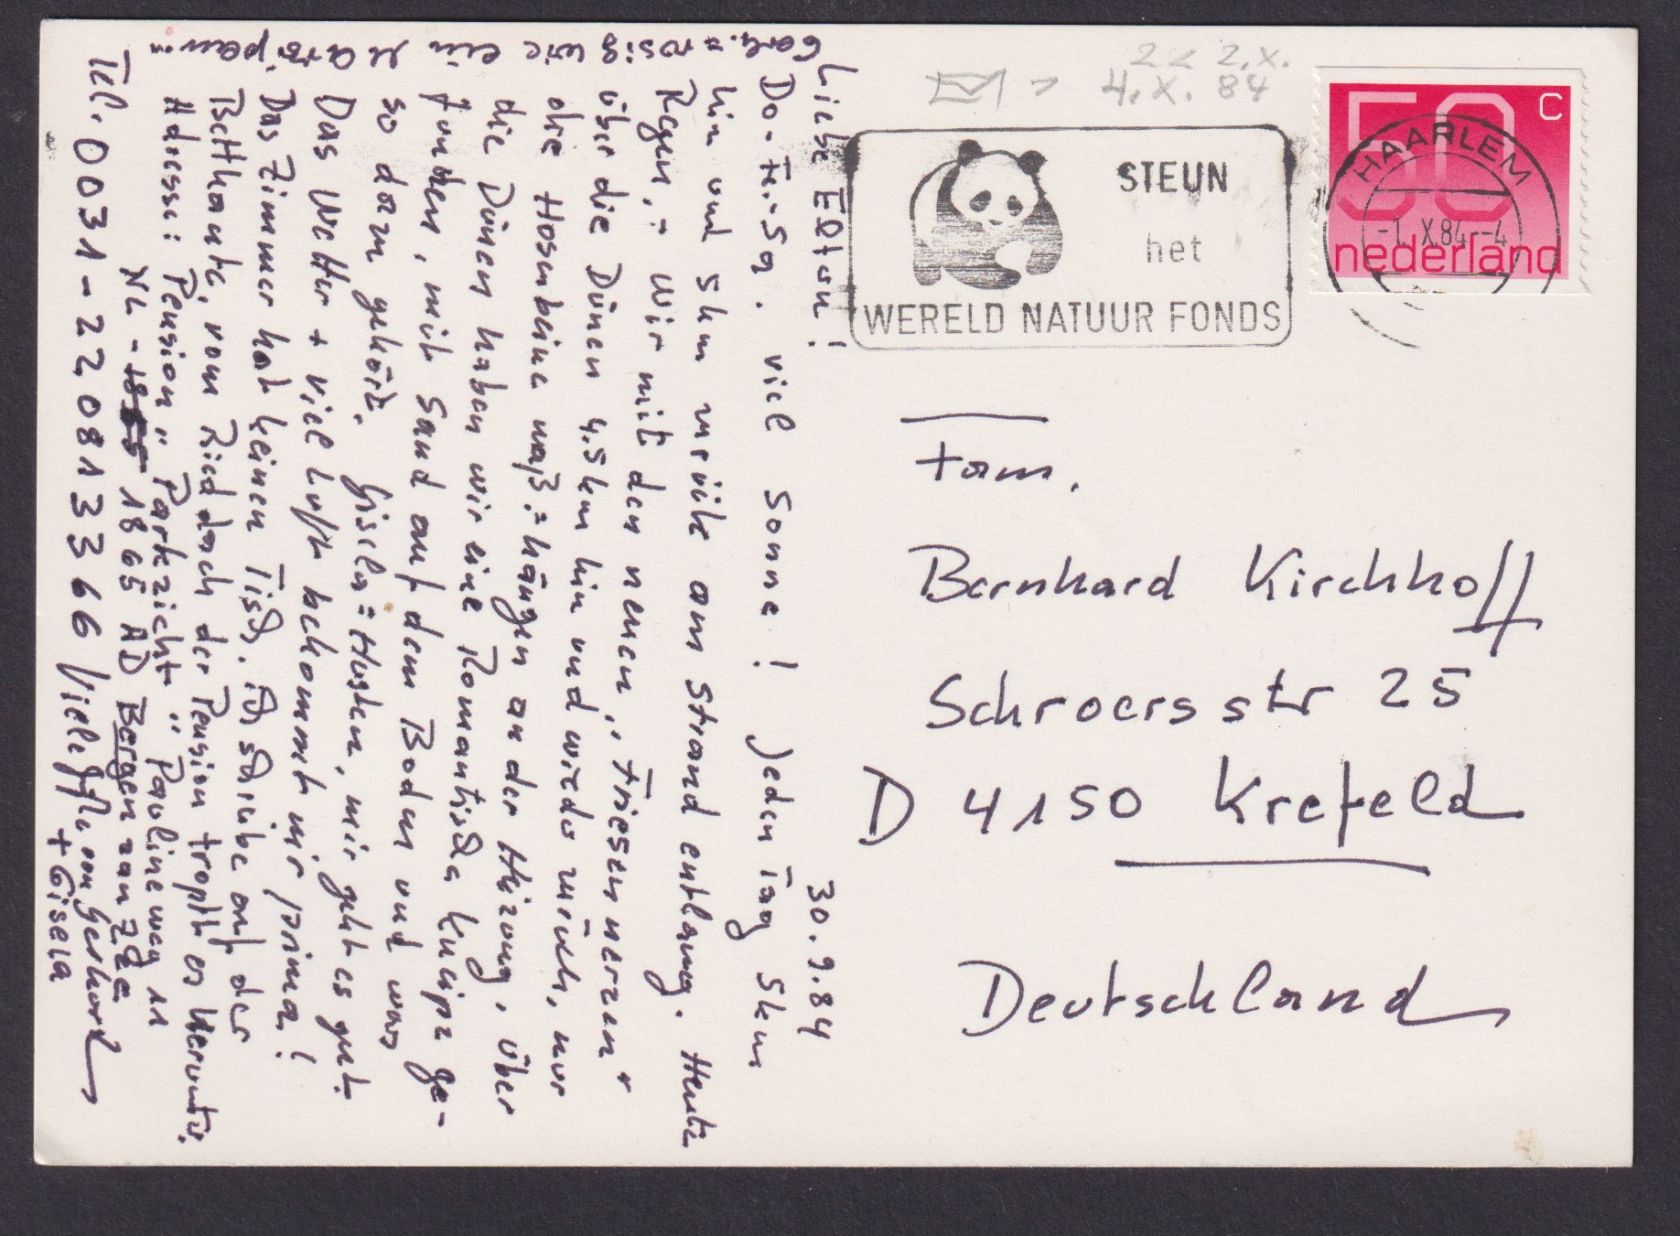 30.9.84
Liebe Eltern!
Do-Fr.-Sa. viel Sonne! Jeden Tag 5km
hin und 5km zurück am Strand entlang. Heute
Regen,= Wir mit den neuen „Friesennerzen"
über die Dünen 4.5km hin und wieder zurück, nur
die Hosenbeine naß.= hängen an der Heizung, über
die Dünen haben wir eine Romantische Kneipe ge-
funden, mit Sand auf dem Boden und was
so dazu gehört. Gisela= Husten, mir geht es gut.
Das Wetter + viel Luft bekommt mir prima!
Das Zimmer hat keinen Tisch. Ich schreibe auf der
Bettkante, vom Rieddach der Pension tropft es herunter.
Adresse: Pension „Parkzicht" Paulineweg 11
NL - 1865 AD Bergen aan Zee
Tel. 0031-220813366 Viele Grüße von Gerhard
+ Gisela
= rosig wie ein Marzipan=
2 < 2.X.
> 4.X.84
50 C
nederland
HAARLEM
-1.X.84--4
STEUN
het
WERELD NATUUR FONDS
Fam.
Bernhard Kirchhoff
Schroersstr 25
D 4150 Krefeld
Deutschland